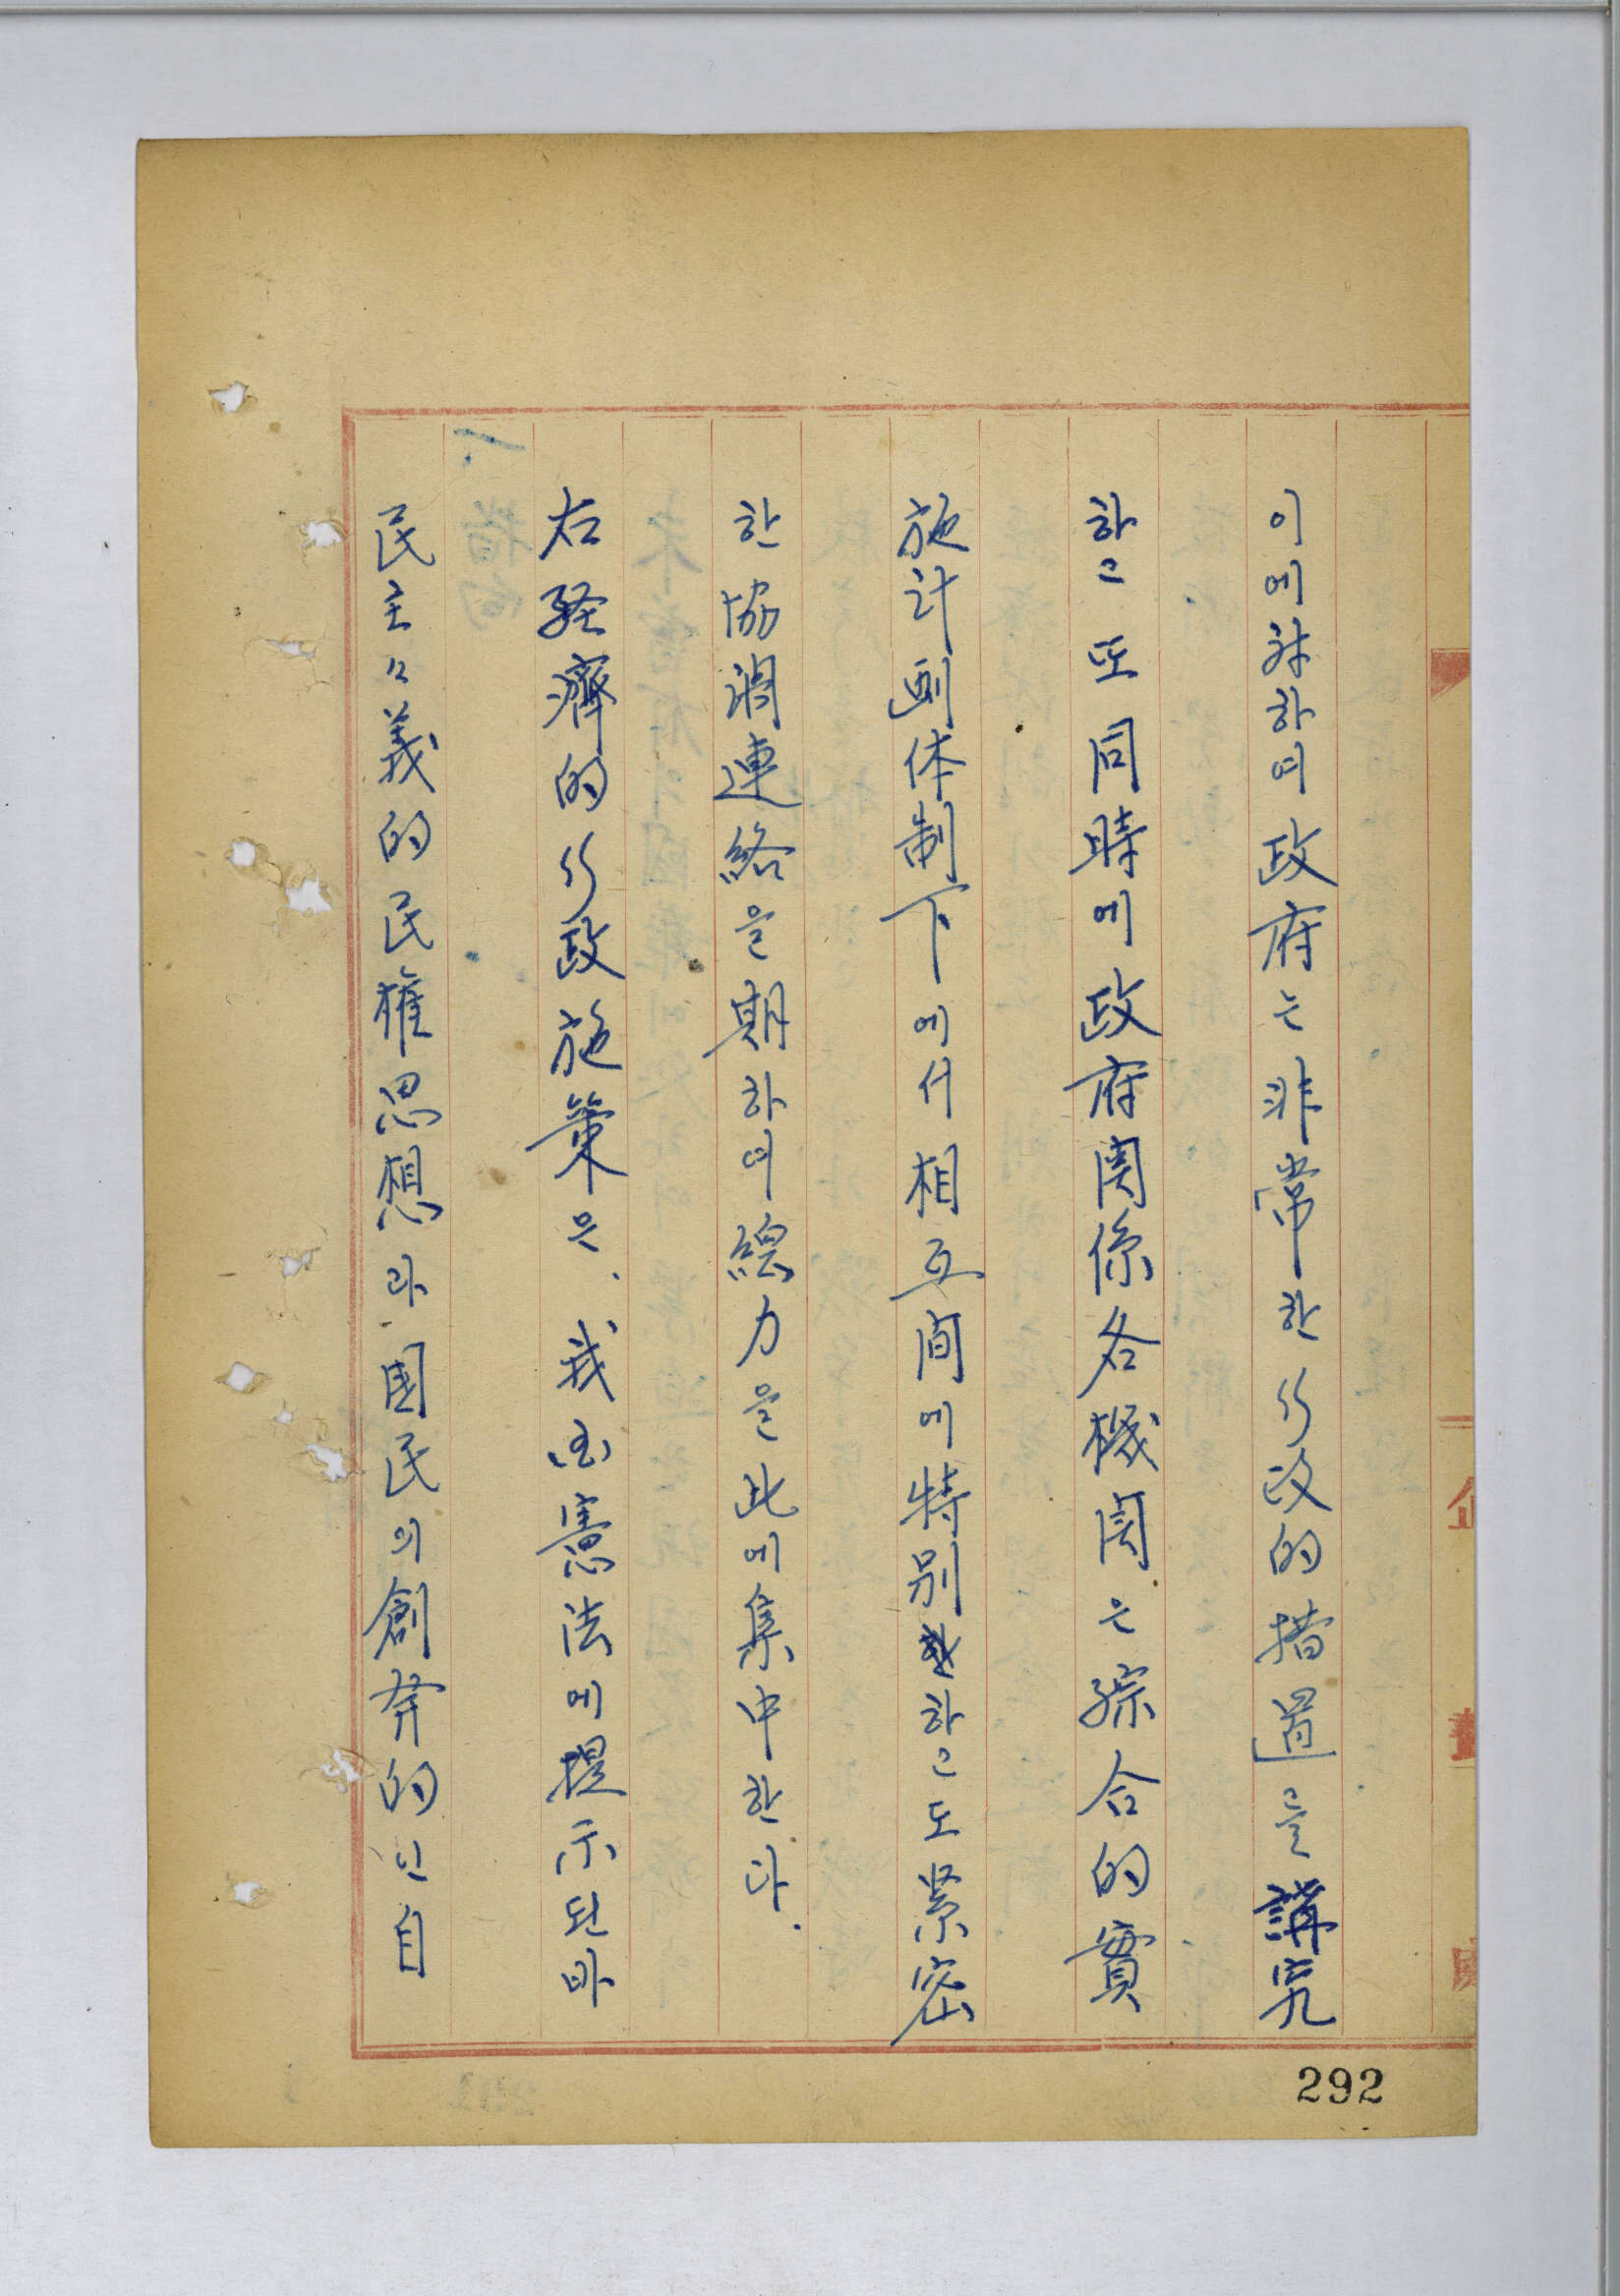 이에对하며政府는非常한行政的措置를講究
하고 또 同時에政府関係各機関은綜合的實
施計劃体制下에서相互間에特別하고도緊密
한協調連絡을期하며總力을此에集中한다.
右経濟的行政施策은、我国憲法에提示된바
民主々義的民權思想과国民의創弁的인自
企
292